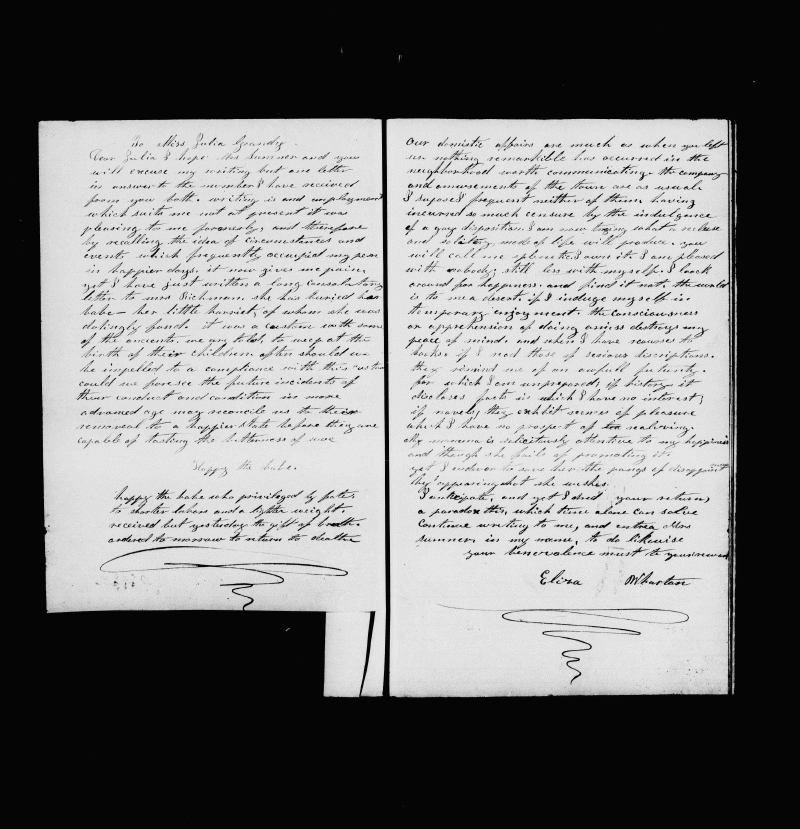 To Miss Julia Grandy.
Dear Julia I hope Mrs Sumner and you
will excuse my writing but one letter
in answer to the number I have received
from you both. writing is and employment
which suits me not at present it was
pleasing to me formerly, and therefore
by recalling the idea of circumstances and
events which frequently occupied my pen
in happier days, it now gives me pain,
yet I have just written a long consolatory
letter to mrs Richman, she has buried her
babe — her little harriet, of whom she was
dotingly fond. it was a custom with some
of the ancients, we are told, to weep at the
birth of their children often should we
be impelled to a compliance with this custom
could we foresee the future incidents of
their conduct and condition in more
advanced age may reconcile us to their
removal to a happier state before they are
capable of tasting the bitterness of woe
Happy the babe.
happy the babe who privileged by fate
to shorter labors and a lighter weight.
received but yesterday the gift of breath.
ordered to morrow to return to death
Our domestic affairs are much as when you left
us. nothing remarkible has occurred in the
neighborhood worth communicating. the company
and amusements of the town are as usual.
I supose I frequent neither of them, having
incurred so much censure by the indulgence
of a gay disposition. I am now trying what a recluse
and solitary, mode of life will produce. you
will call me splenetic. I own it. I am pleased
with nobody; still less with myself. I look
around for happiness. and find it not. the world
is to me a desert. if I induge myself in
temporary enjoyment. the consciousness
or apprehension of doing amiss destroys my
peace of mind. and when I have recourse to
books if I read those of serious discriptions.
they remind me of an awfull futurity.
for which I am unprepared; if history it
discloses facts in which I have no interest;
if novels, they exhibit scenes of pleasure
which I have no prospect of realizing.
My mamma is solicitously attentive to my happiness
and though she fails of promoting it.
yet I endevor to save her the pangs of disappoint
by appearing what she wishes.
I anticipate, and yet I dread your return,
a paradox this, which time alone can solve
Continue writing to me, and entrea Mrs
sumner, in my name, to do likewise
your benevolence must be your reward
Eliza Wharton